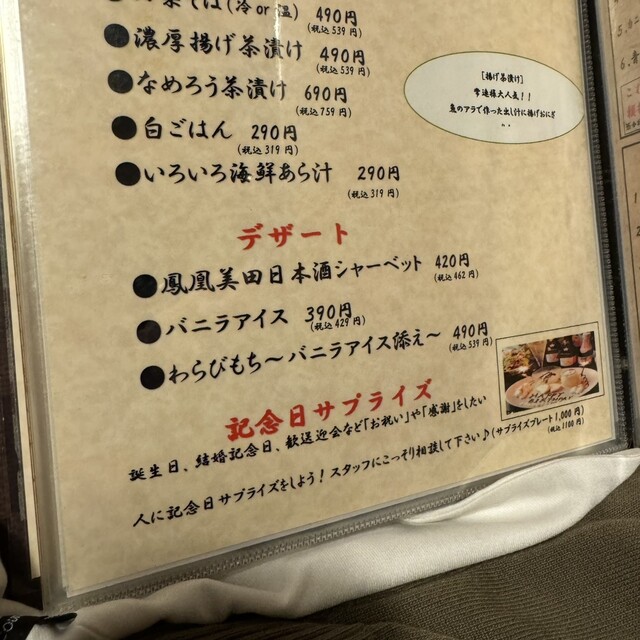 そば(冷or温) 490円
(税込539円)
●濃厚揚げ茶漬け 490円
(税込539円)
●なめろう茶漬け 690円
(税込759円)
●白ごはん 290円
(税込319円)
●いろいろ海鮮あら汁 290円
(税込319円)
[揚げ茶漬け]
常連様大人気!!
魚のアラで作った出し汁に揚げおにぎ
デザート
●鳳凰美田日本酒シャーベット 420円
(税込462円)
●バニラアイス 390円
(税込429円)
●わらびもち~バニラアイス添え~ 490円
(税込539円)
記念日サプライズ
誕生日、結婚記念日、歓送迎会など「お祝い」や「感謝」をしたい
人に記念日サプライズをしよう!スタッフにこっそり相談して下さい♪(サプライズプレート1,000円)
(税込1100円)